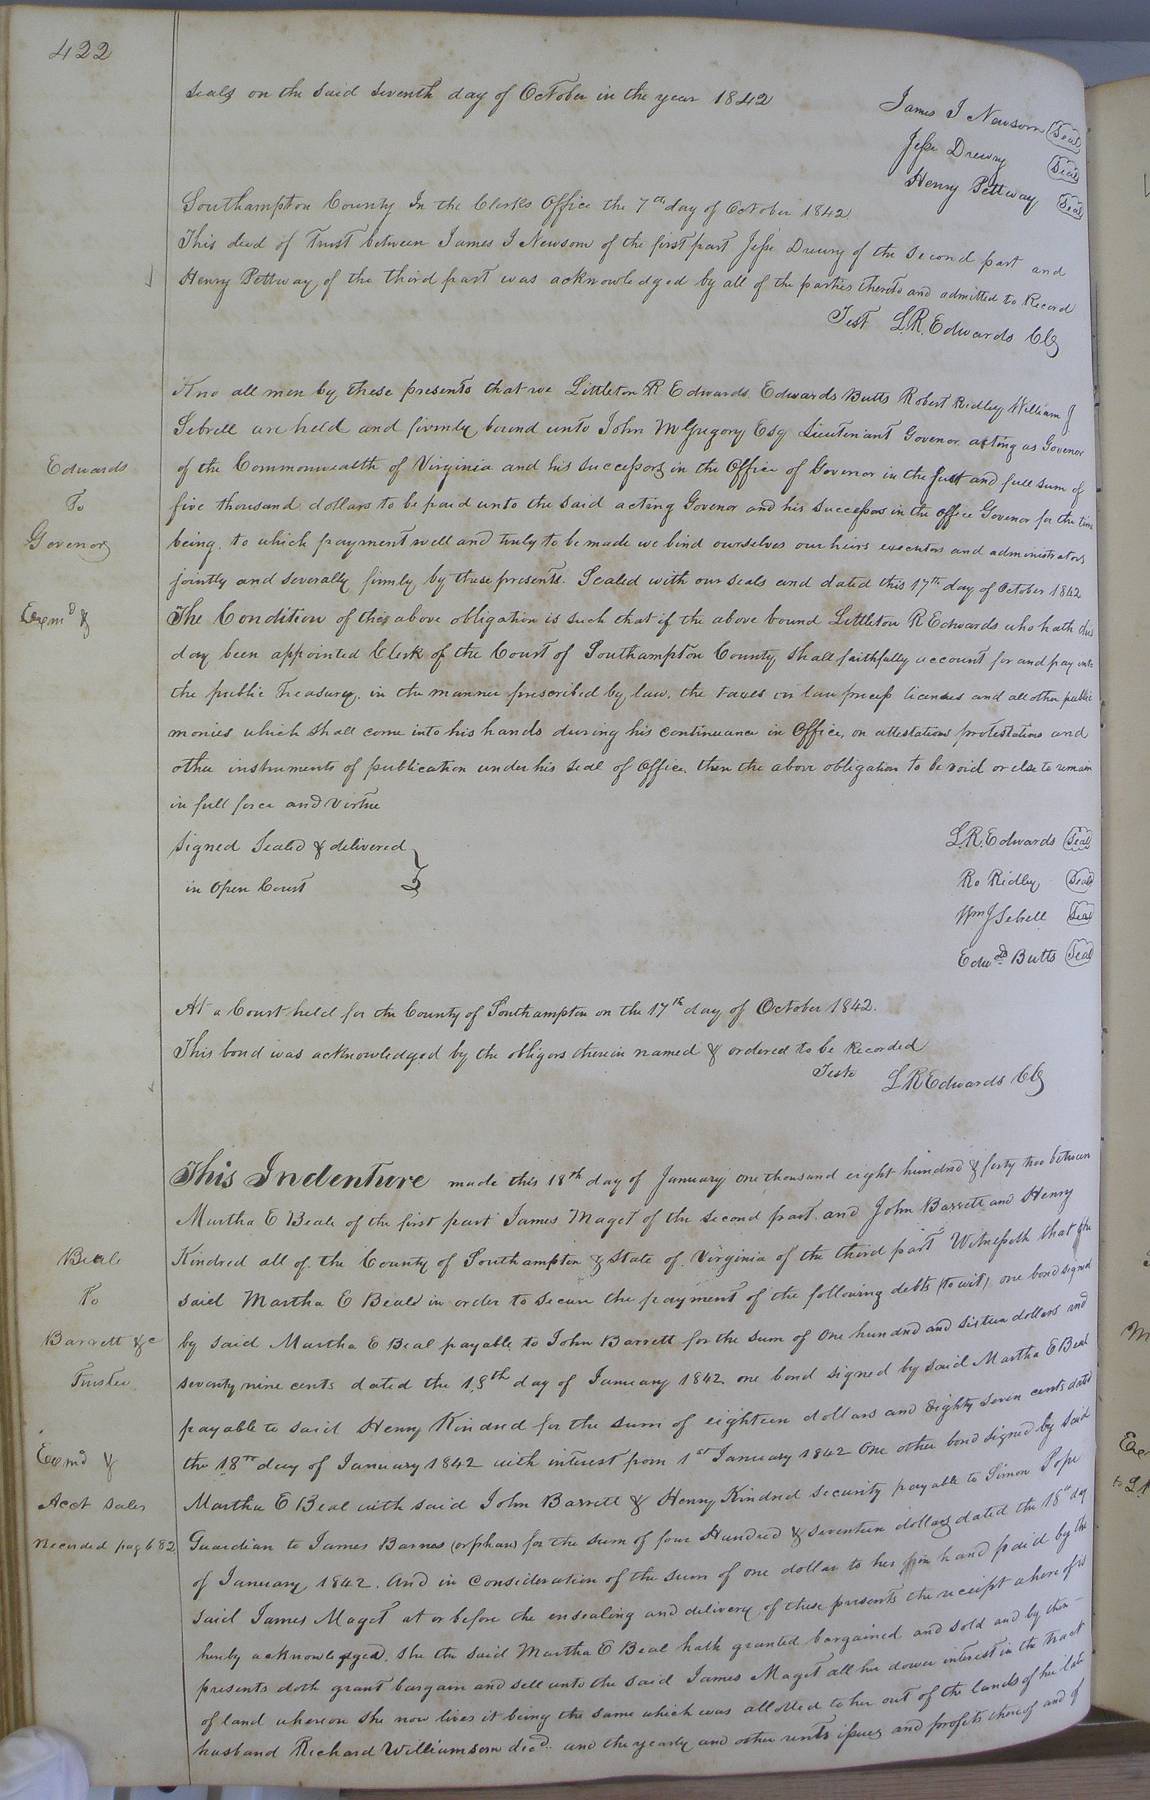 422
seals on the said seventh day of October in the year 1842
James J Newsom Seal
Jesse Drewry Seal
Henry Pettway Seal
Southampton County In the Clerks Office the 7th day of October 1842
This deed of Trust between James J Newsom of the first part Jesse Drewry of the second part and
Henry Pettway of the third part was acknowledged by all of the parties thereto and admitted to Record
Test L.R. Edwards Clk
Edwards
To
Govenor
Exmd &
Kno all men by these presents that we Littleton R Edwards Edwards Butts Robert Ridley William J
Sebrell are held and firmly bound unto John M Gregory Esq Lieutenant Govenor acting as Govenor
of the Commonwealth of Virginia and his successors in the Office of Govenor in the just and full sum of
five thousand dollars to be paid unto the said acting Govenor and his successors in the office Govenor for the time
being, to which payment well and truly to be made we bind ourselves our heirs executors and administrators
jointly and severally firmly by these presents. Sealed with our seals and dated this 17th day of October 1842
The Condition of this above obligation is such that if the above bound Littleton R Edwards who hath this
day been appointed Clerk of the Court of Southampton County shall faithfully account for and pay into
the public Treasury, in the manner prescribed by law, the taxes on law process licenses and all other public
monies which shall come into his hands during his continuance in Office, on attestations protestations and
other instruments of publication under his seal of Office, then the above obligation to be void or else to remain
in full force and virtue
Signed Sealed & delivered
in Open Court
L.R. Edwards Seal
Ro Ridley Seal
Wm J Sebrell Seal
Edwd Butts Seal
At a Court held for the County of Southampton on the 17th day of October 1842.
This bond was acknowledged by the obligors therein named & ordered to be Recorded
Teste L R Edwards Clk
Beale
To
Barrett &c
Trustee
Exmd &
Acct Sales
recorded pag 682
This Indenture made this 18th day of January one thousand eight hundred & forty two between
Martha E Beale of the first part James Maget of the second part and John Barrett and Henry
Kindred all of the County of Southampton & State of Virginia of the third part Witnesseth that the
said Martha E Beale in order to secure the payment of the following debts (to wit) one bond signed
by said Martha E Beal payable to John Barrett for the sum of One hundred and sixteen dollars and
seventy nine cents dated the 18th day of January 1842 one bond signed by said Martha E Beal
payable to said Henry Kindred for the sum of eighteen dollars and Eighty seven cents dated
the 18th day of January 1842 with interest from 1st January 1842 One other bond signed by said
Martha E Beal with said John Barrett & Henry Kindred security payable to Simon Pope
Guardian to James Barnes (orphan) for the sum of four Hundred & seventeen dollars dated the 18th day
of January, 1842. And in consideration of the sum of one dollar to her in hand paid by the
said James Maget at or before the ensealing and delivery of these presents the receipt whereof is
hereby acknowledged. She the said Martha E Beal hath granted bargained and sold and by these
presents doth grant bargain and sell unto the said James Maget all her dower interest in the tract
of land whereon she now lives it being the same which was allotted to her out of the lands of her late
husband Richard Williamson decd. and the yearly and other rents issues and profits thereof and of